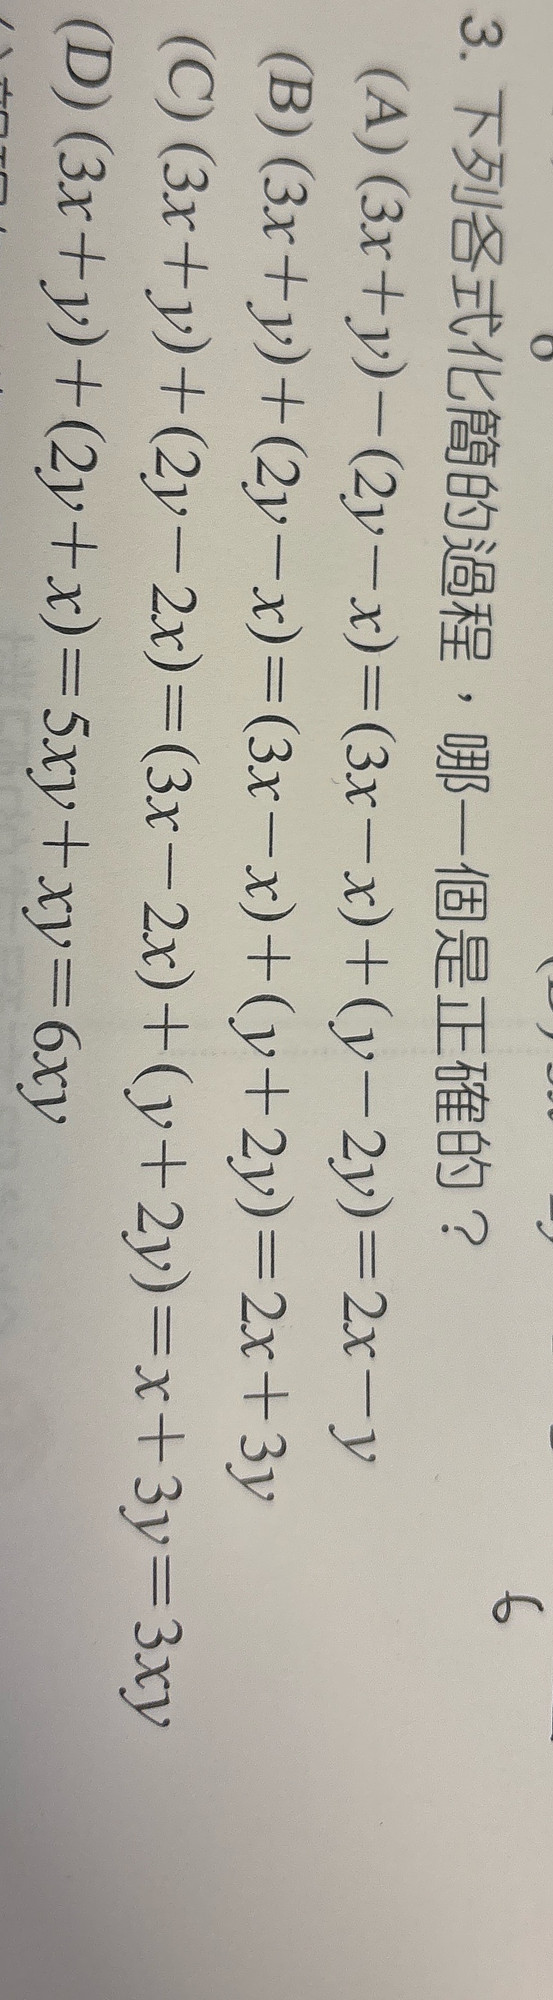 6
3. 下列各式化簡的過程，哪一個是正確的？
(A) (3x+y)-(2y-x)=(3x-x)+(y-2y)=2x-y
(B) (3x+y)+(2y-x)=(3x-x)+(y+2y)=2x+3y
(C) (3x+y)+(2y-2x)=(3x-2x)+(y+2y)=x+3y=3xy
(D) (3x+y)+(2y+x)=5xy+xy=6xy